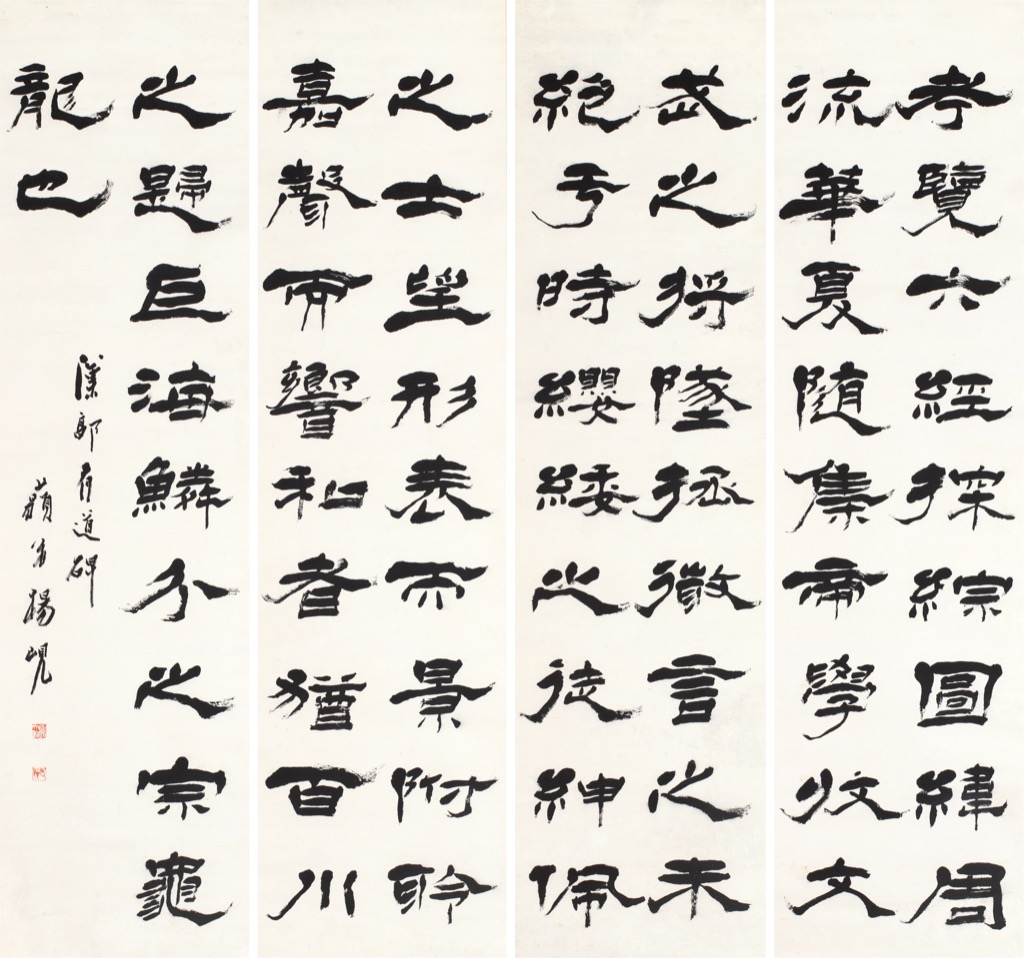 考覽六經探綜圖緯周
流華夏随集帝學收文
武之将墜拯微言之未
絕亏時纓緌之徒紳佩
之士望形表而景附聆
嘉聲而響和者猶百川
之歸巨海鱗介之宗龜
龍也
漢郭有道碑
藐翁楊峴